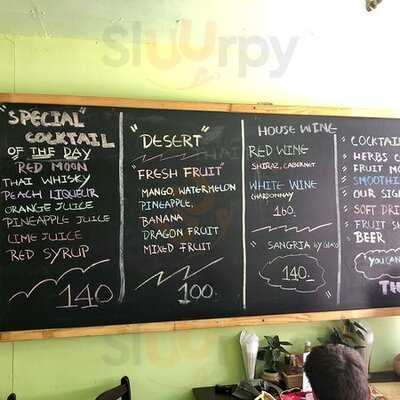 Sluurpy
"SPECIAL"
COCKTAIL
OF THE DAY
RED MOON
THAI WHISKY
PEACH LIQUEUR
ORANGE JUICE
PINEAPPLE JUICE
LIME JUICE
RED SYRUP
140
"DESERT"
"FRESH FRUIT"
MANGO, WATERMELON
PINEAPPLE,
BANANA
DRAGON FRUIT
MIXED FRUIT
100.
HOUSE WINE
RED WINE
SHIRAZ, CABERNET
WHITE WINE
CHARDONNAY
160.
"SANGRIA by GLASS
140.
COCKTAIL
HERBS
FRUIT
SMOOTHI
OUR SIG
SOFT DRI
FRUIT SH
BEER
"YOU CAN
TH